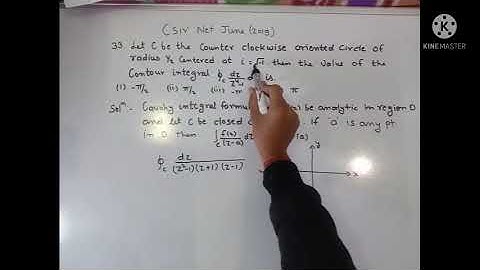 CSIR Net June (2018)
33. Let C be the Counter clockwise oriented Circle of
radius 1/2 Centered at i = √-1 then the value of the
Contour integral ∮c dz/z⁴-1 is
(i) -π/2 (ii) π/2 (iii) -π π
Solⁿ. Cauchy integral formula be analytic in region D
and let C be closed If 'a' is any pt
in D then ∫c f(z)/(z-a) dz (a)
∮c dz/(z²-1)(z+1)(z-1)
y
x
KINEMASTER